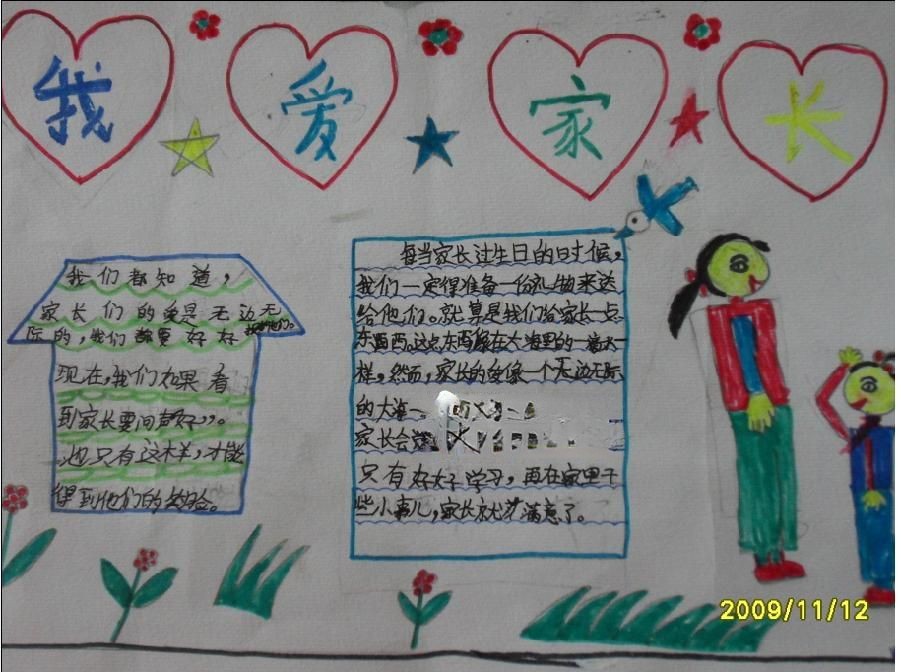 我 爱 家 长
我们都知道，
家长们的爱是无边无
际的，我们都要好好
现在，我们如果看
到家长要问声"好"。
也只有这样，才能
得到他们的
每当家长过生日的日时候，
我们一定得准备一份礼物来送
给他们。就算是我们给家长一点
东西，这点东西像在大海里的一滴水一
样，然而，家长的爱像一个无边无际
的大海
家长会
只有好好学习，再在家里干
些小事儿，家长就 满意了。
2009/11/12